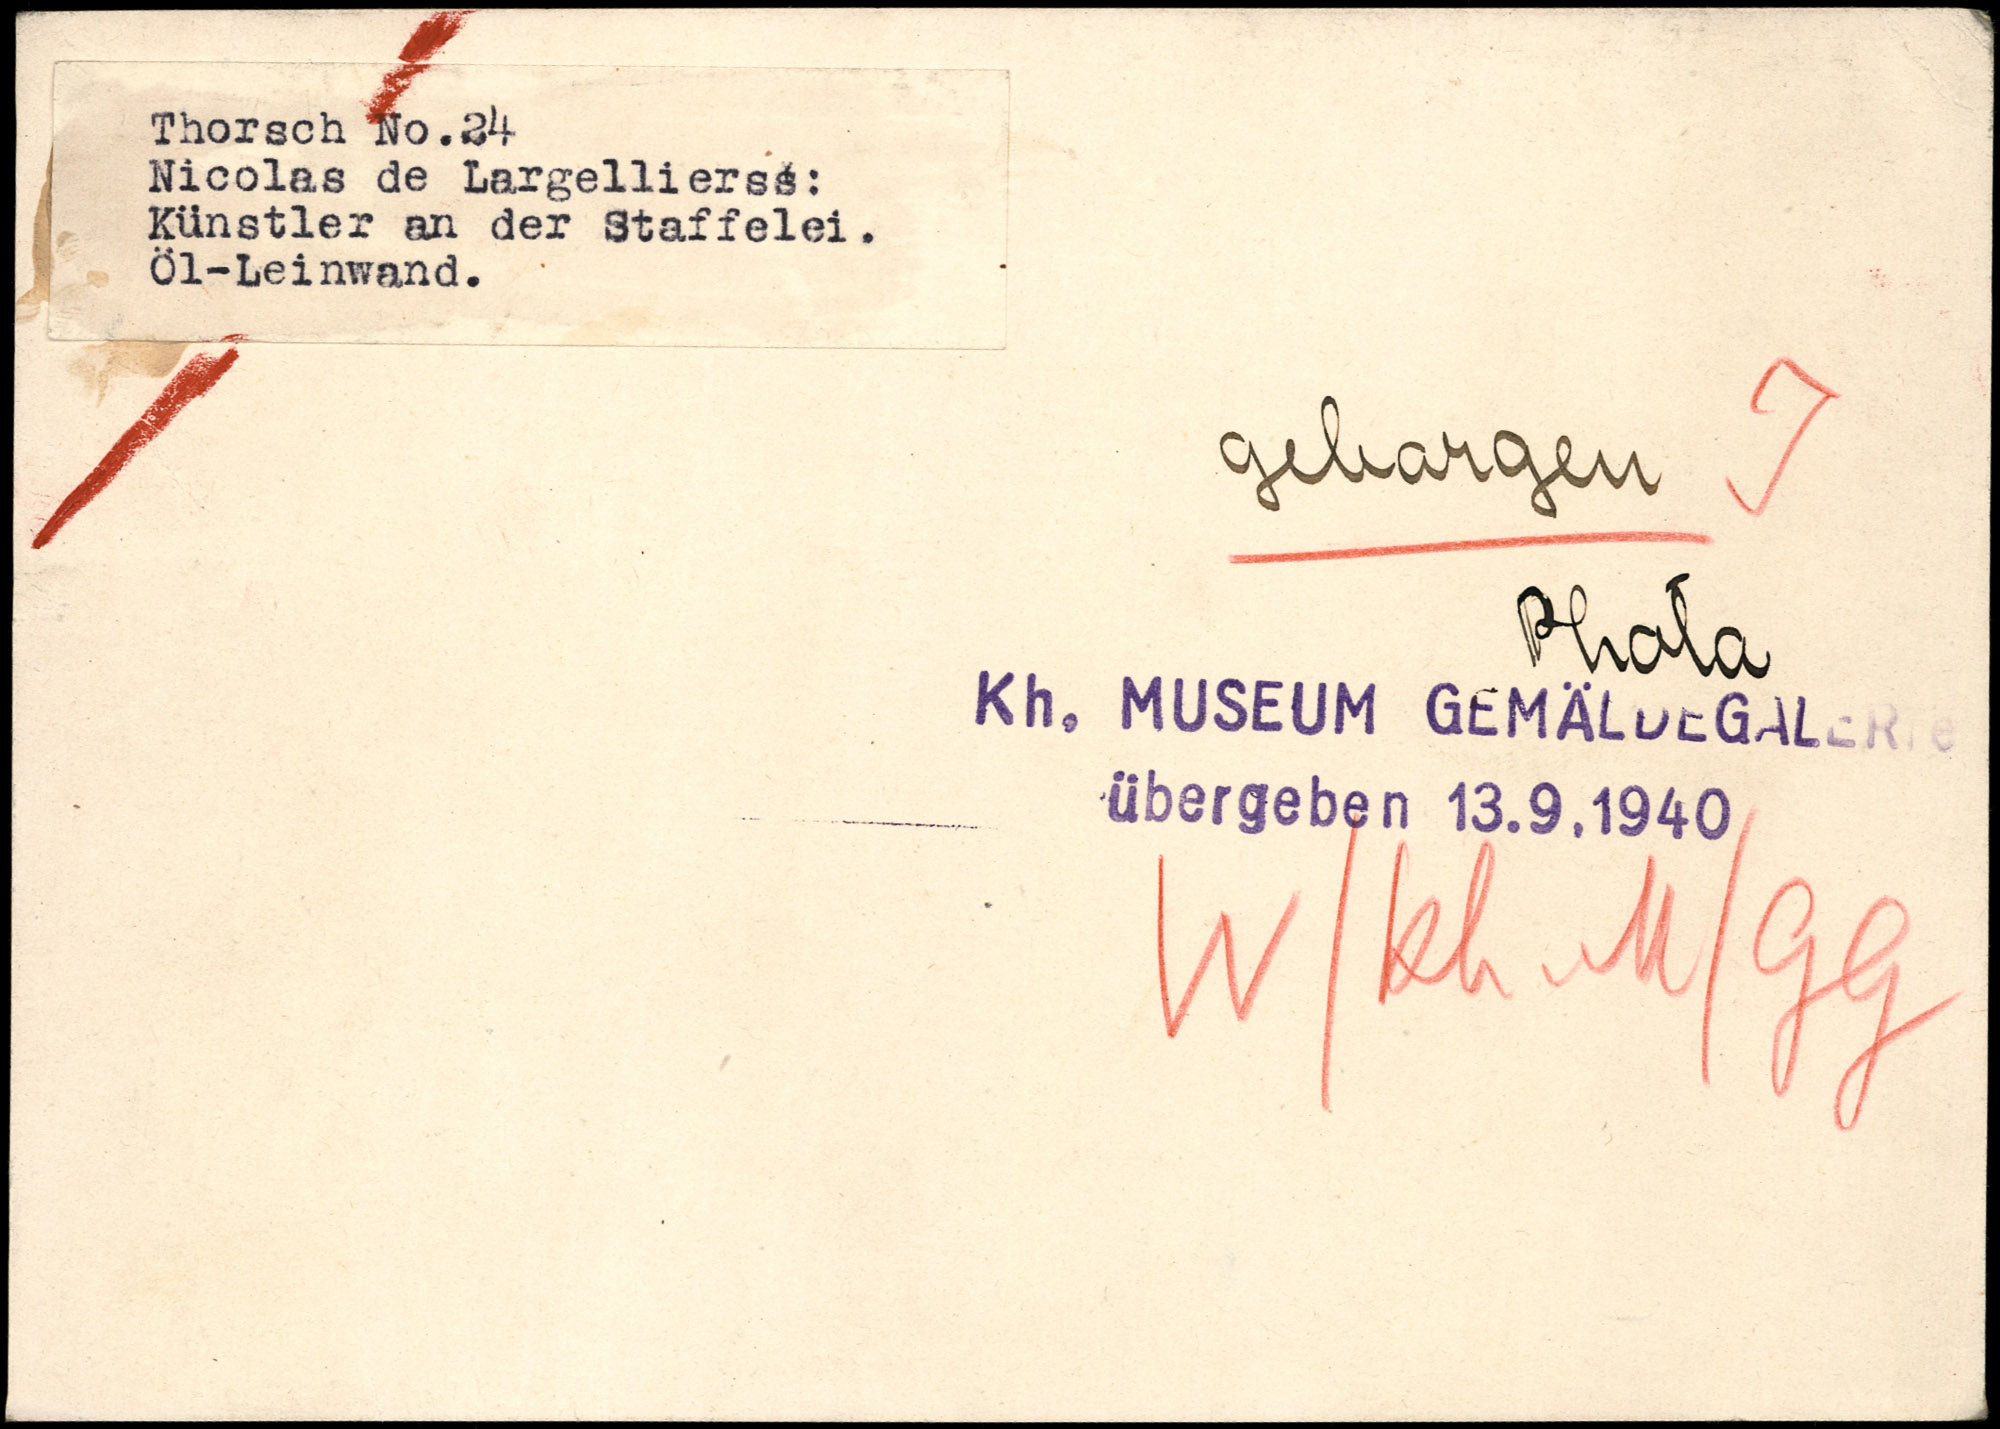 Thorsch No.24
Nicolas de Largellierss:
Künstler an der Staffelei.
Öl-Leinwand.
geborgen J
Photo
Kh. MUSEUM GEMÄLDEGALERIE
übergeben 13.9.1940
W/kh. M/GG